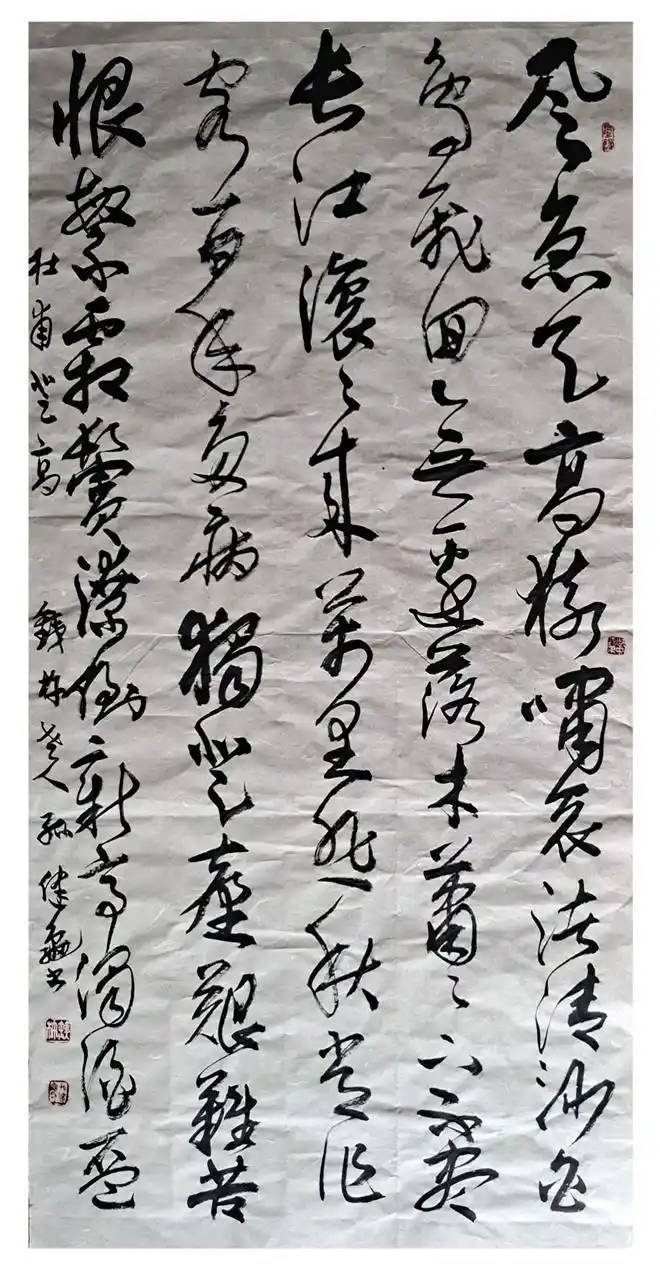 風急天高猿嘯哀渚清沙白
鳥飛回〻無邊落木蕭〻下不盡
長江滾〻來萬里悲秋常作
客百年多病獨登臺艱難苦
恨繁霜鬢潦倒新亭濁酒盃
杜甫登高 孫健書